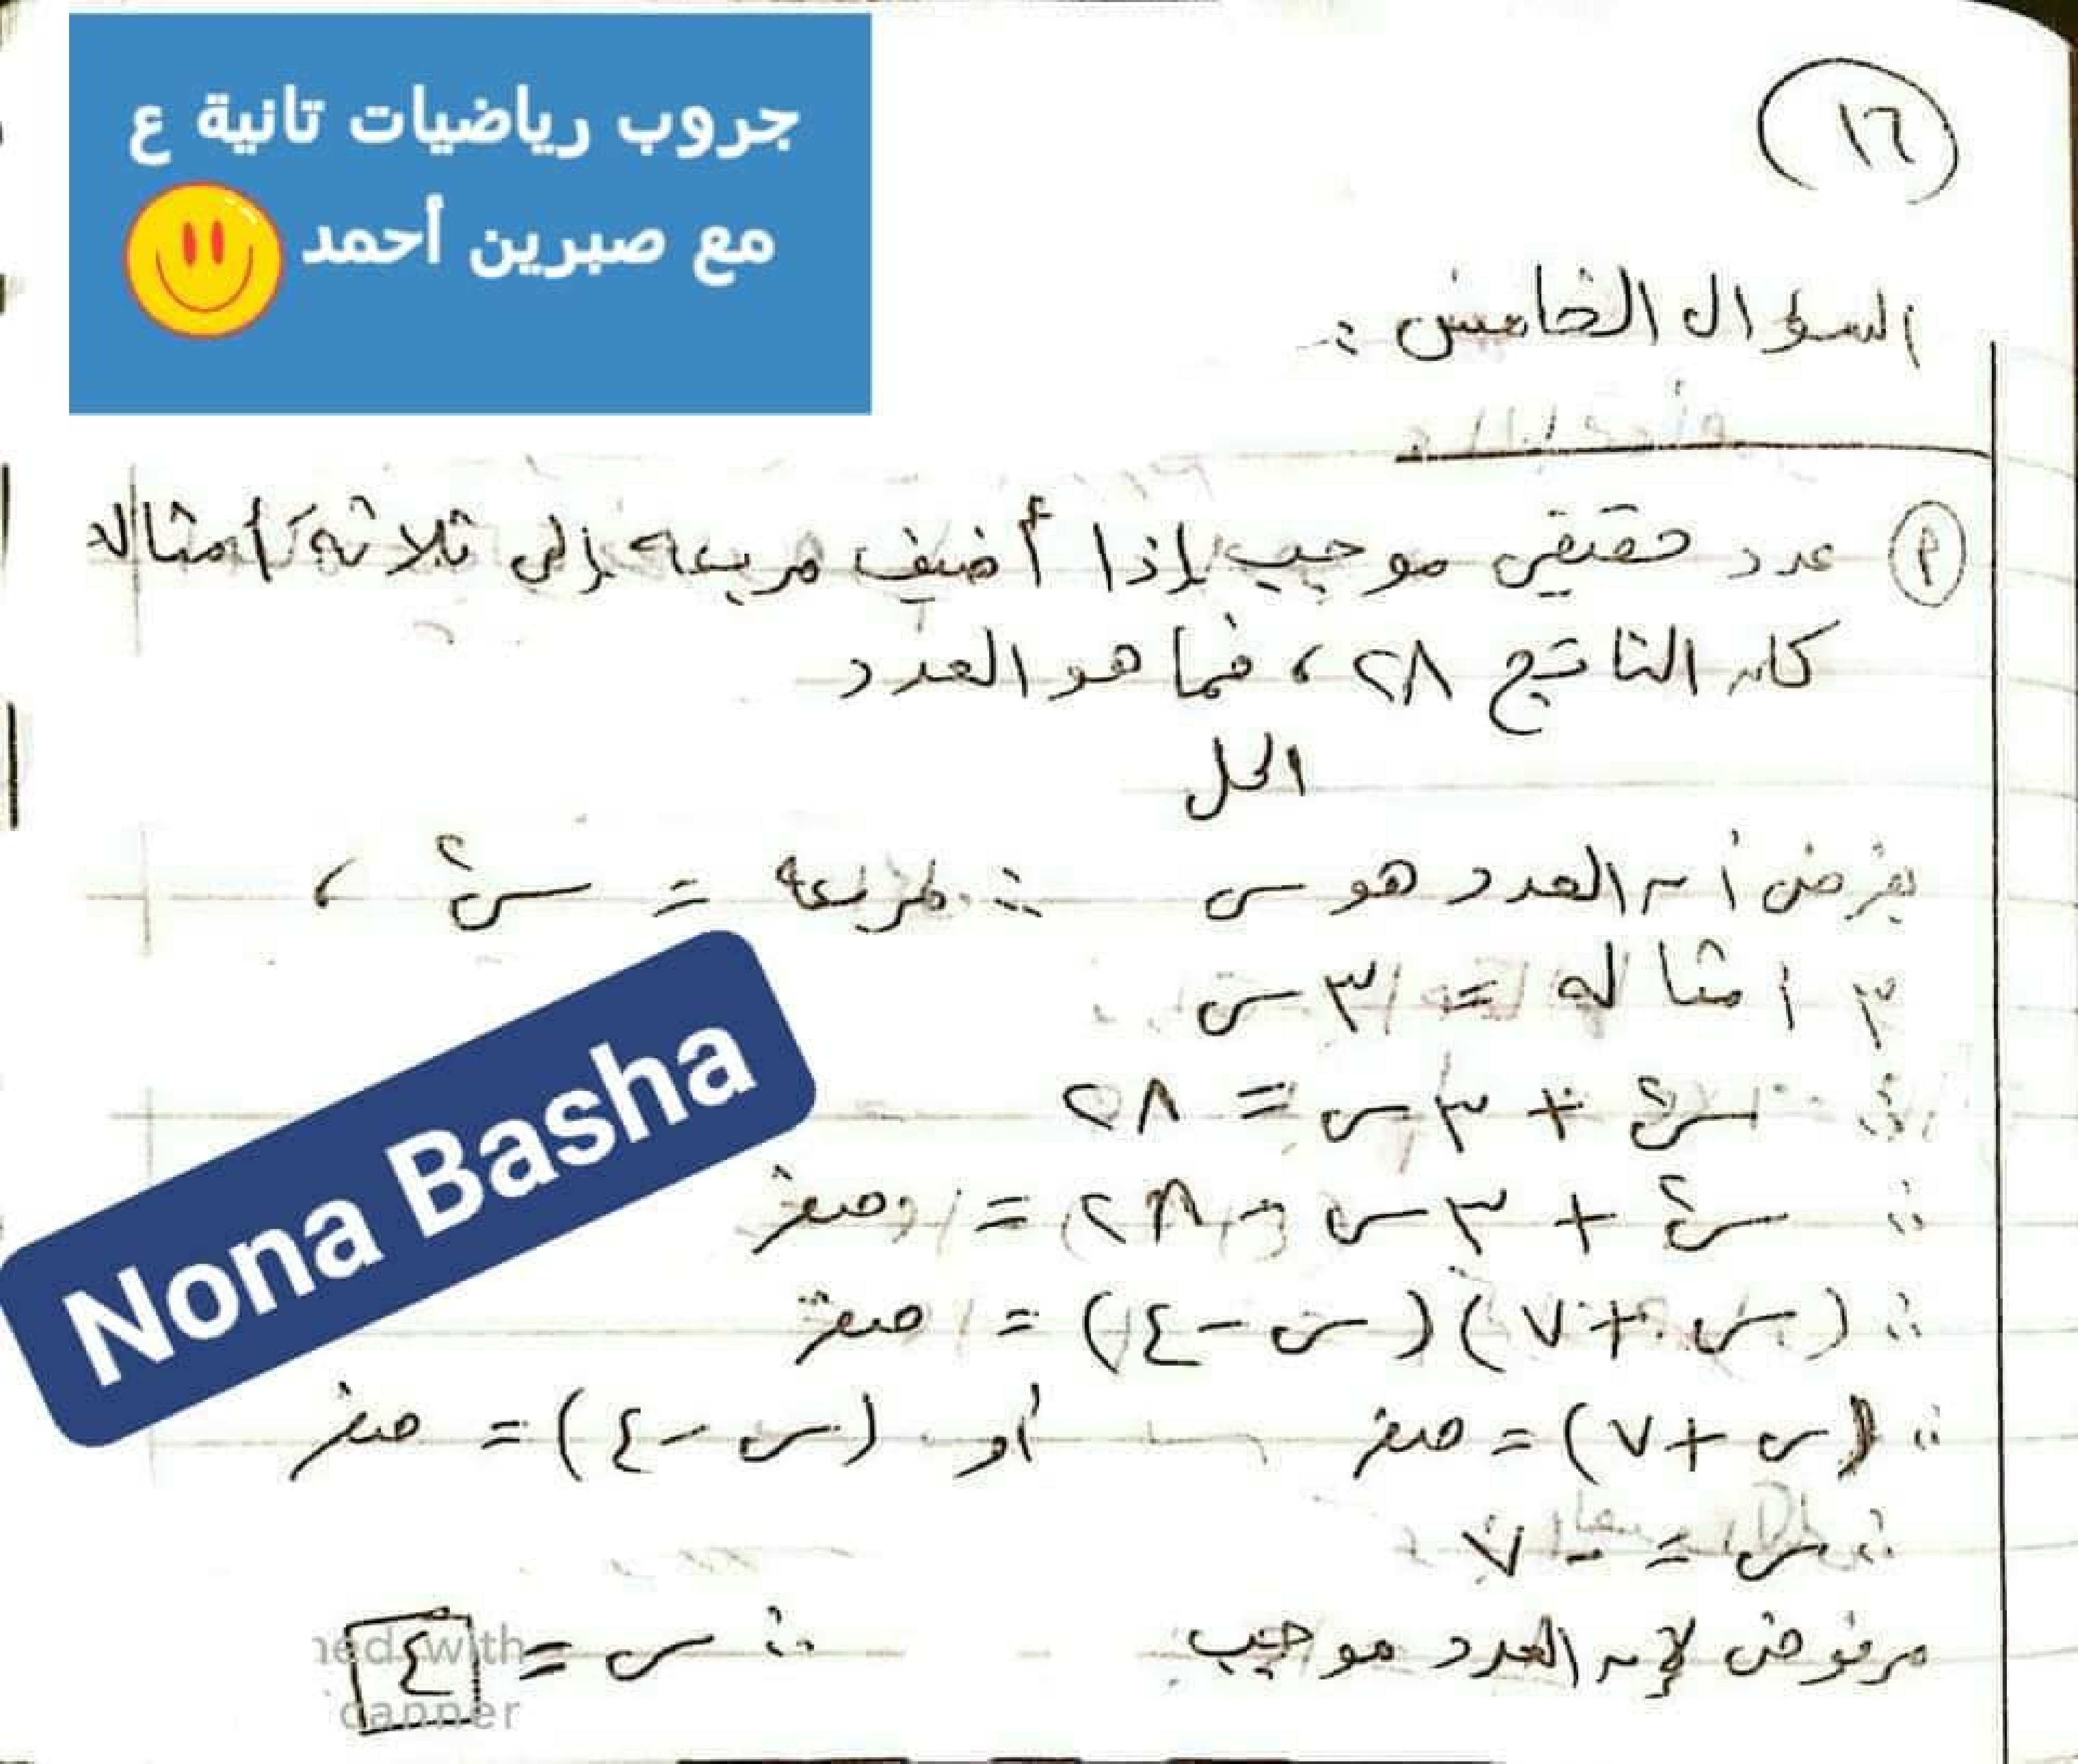 جروب رياضيات تانية ع
مع صبرين أحمد
١٦
السؤال الخامس :-
أ عدد حقيقي موجب إذا أضيف مربعه إلى ثلاثة أمثاله
كان الناتج ٢٨ ، فما هو العدد
الحل
بفرض أن العدد هو س ∴ مربعه = س² ،
٣ أمثاله = ٣س
∴ س² + ٣س = ٢٨
∴ س² + ٣س - ٢٨ = صفر
∴ (س + ٧)(س - ٤) = صفر
∴ (س + ٧) = صفر أو (س - ٤) = صفر
∴ س = - ٧
مرفوض لأن العدد موجب ∴ س = ٤
Nona Basha
ned with
canner